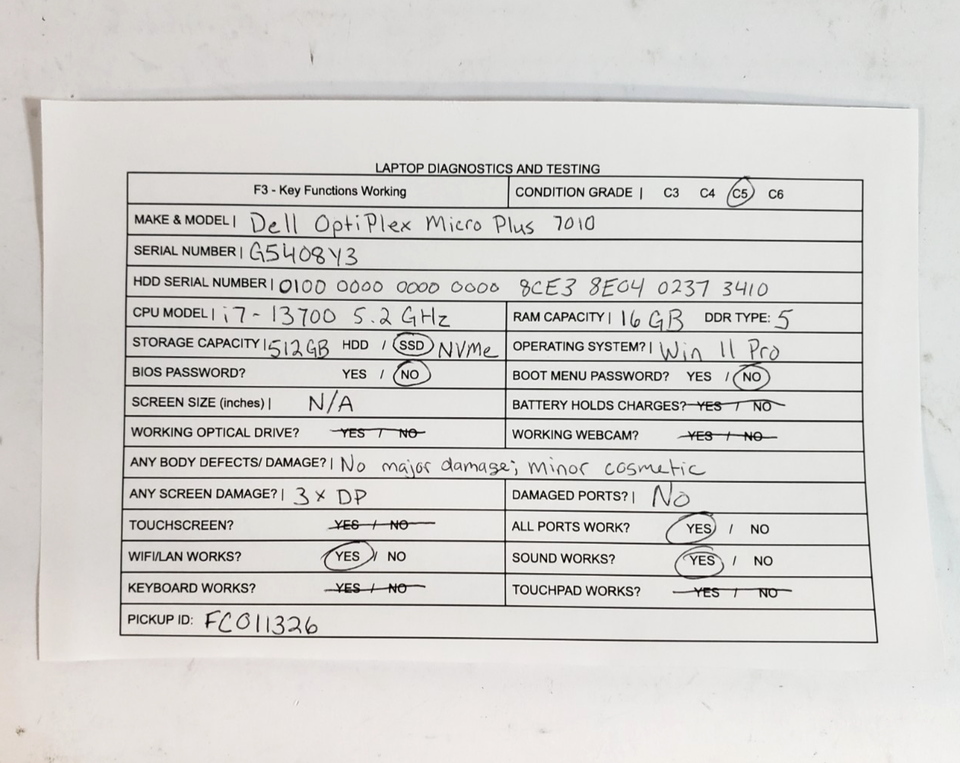 LAPTOP DIAGNOSTICS AND TESTING
F3 - Key Functions Working CONDITION GRADE | C3 C4 C5 C6
MAKE & MODEL | Dell OptiPlex Micro Plus 7010
SERIAL NUMBER | G5408Y3
HDD SERIAL NUMBER | 0100 0000 0000 0000 8CE3 8E04 0237 3410
CPU MODEL | i7-13700 5.2 GHz RAM CAPACITY | 16 GB DDR TYPE: 5
STORAGE CAPACITY | 512GB HDD / SSD NVMe OPERATING SYSTEM? | Win 11 Pro
BIOS PASSWORD? YES / NO BOOT MENU PASSWORD? YES / NO
SCREEN SIZE (inches) | N/A BATTERY HOLDS CHARGES? YES / NO
WORKING OPTICAL DRIVE? YES / NO WORKING WEBCAM? YES / NO
ANY BODY DEFECTS/ DAMAGE? | No major damage; minor cosmetic
ANY SCREEN DAMAGE? | 3 x DP DAMAGED PORTS? | No
TOUCHSCREEN? YES / NO ALL PORTS WORK? YES / NO
WIFI/LAN WORKS? YES / NO SOUND WORKS? YES / NO
KEYBOARD WORKS? YES / NO TOUCHPAD WORKS? YES / NO
PICKUP ID: FC011326